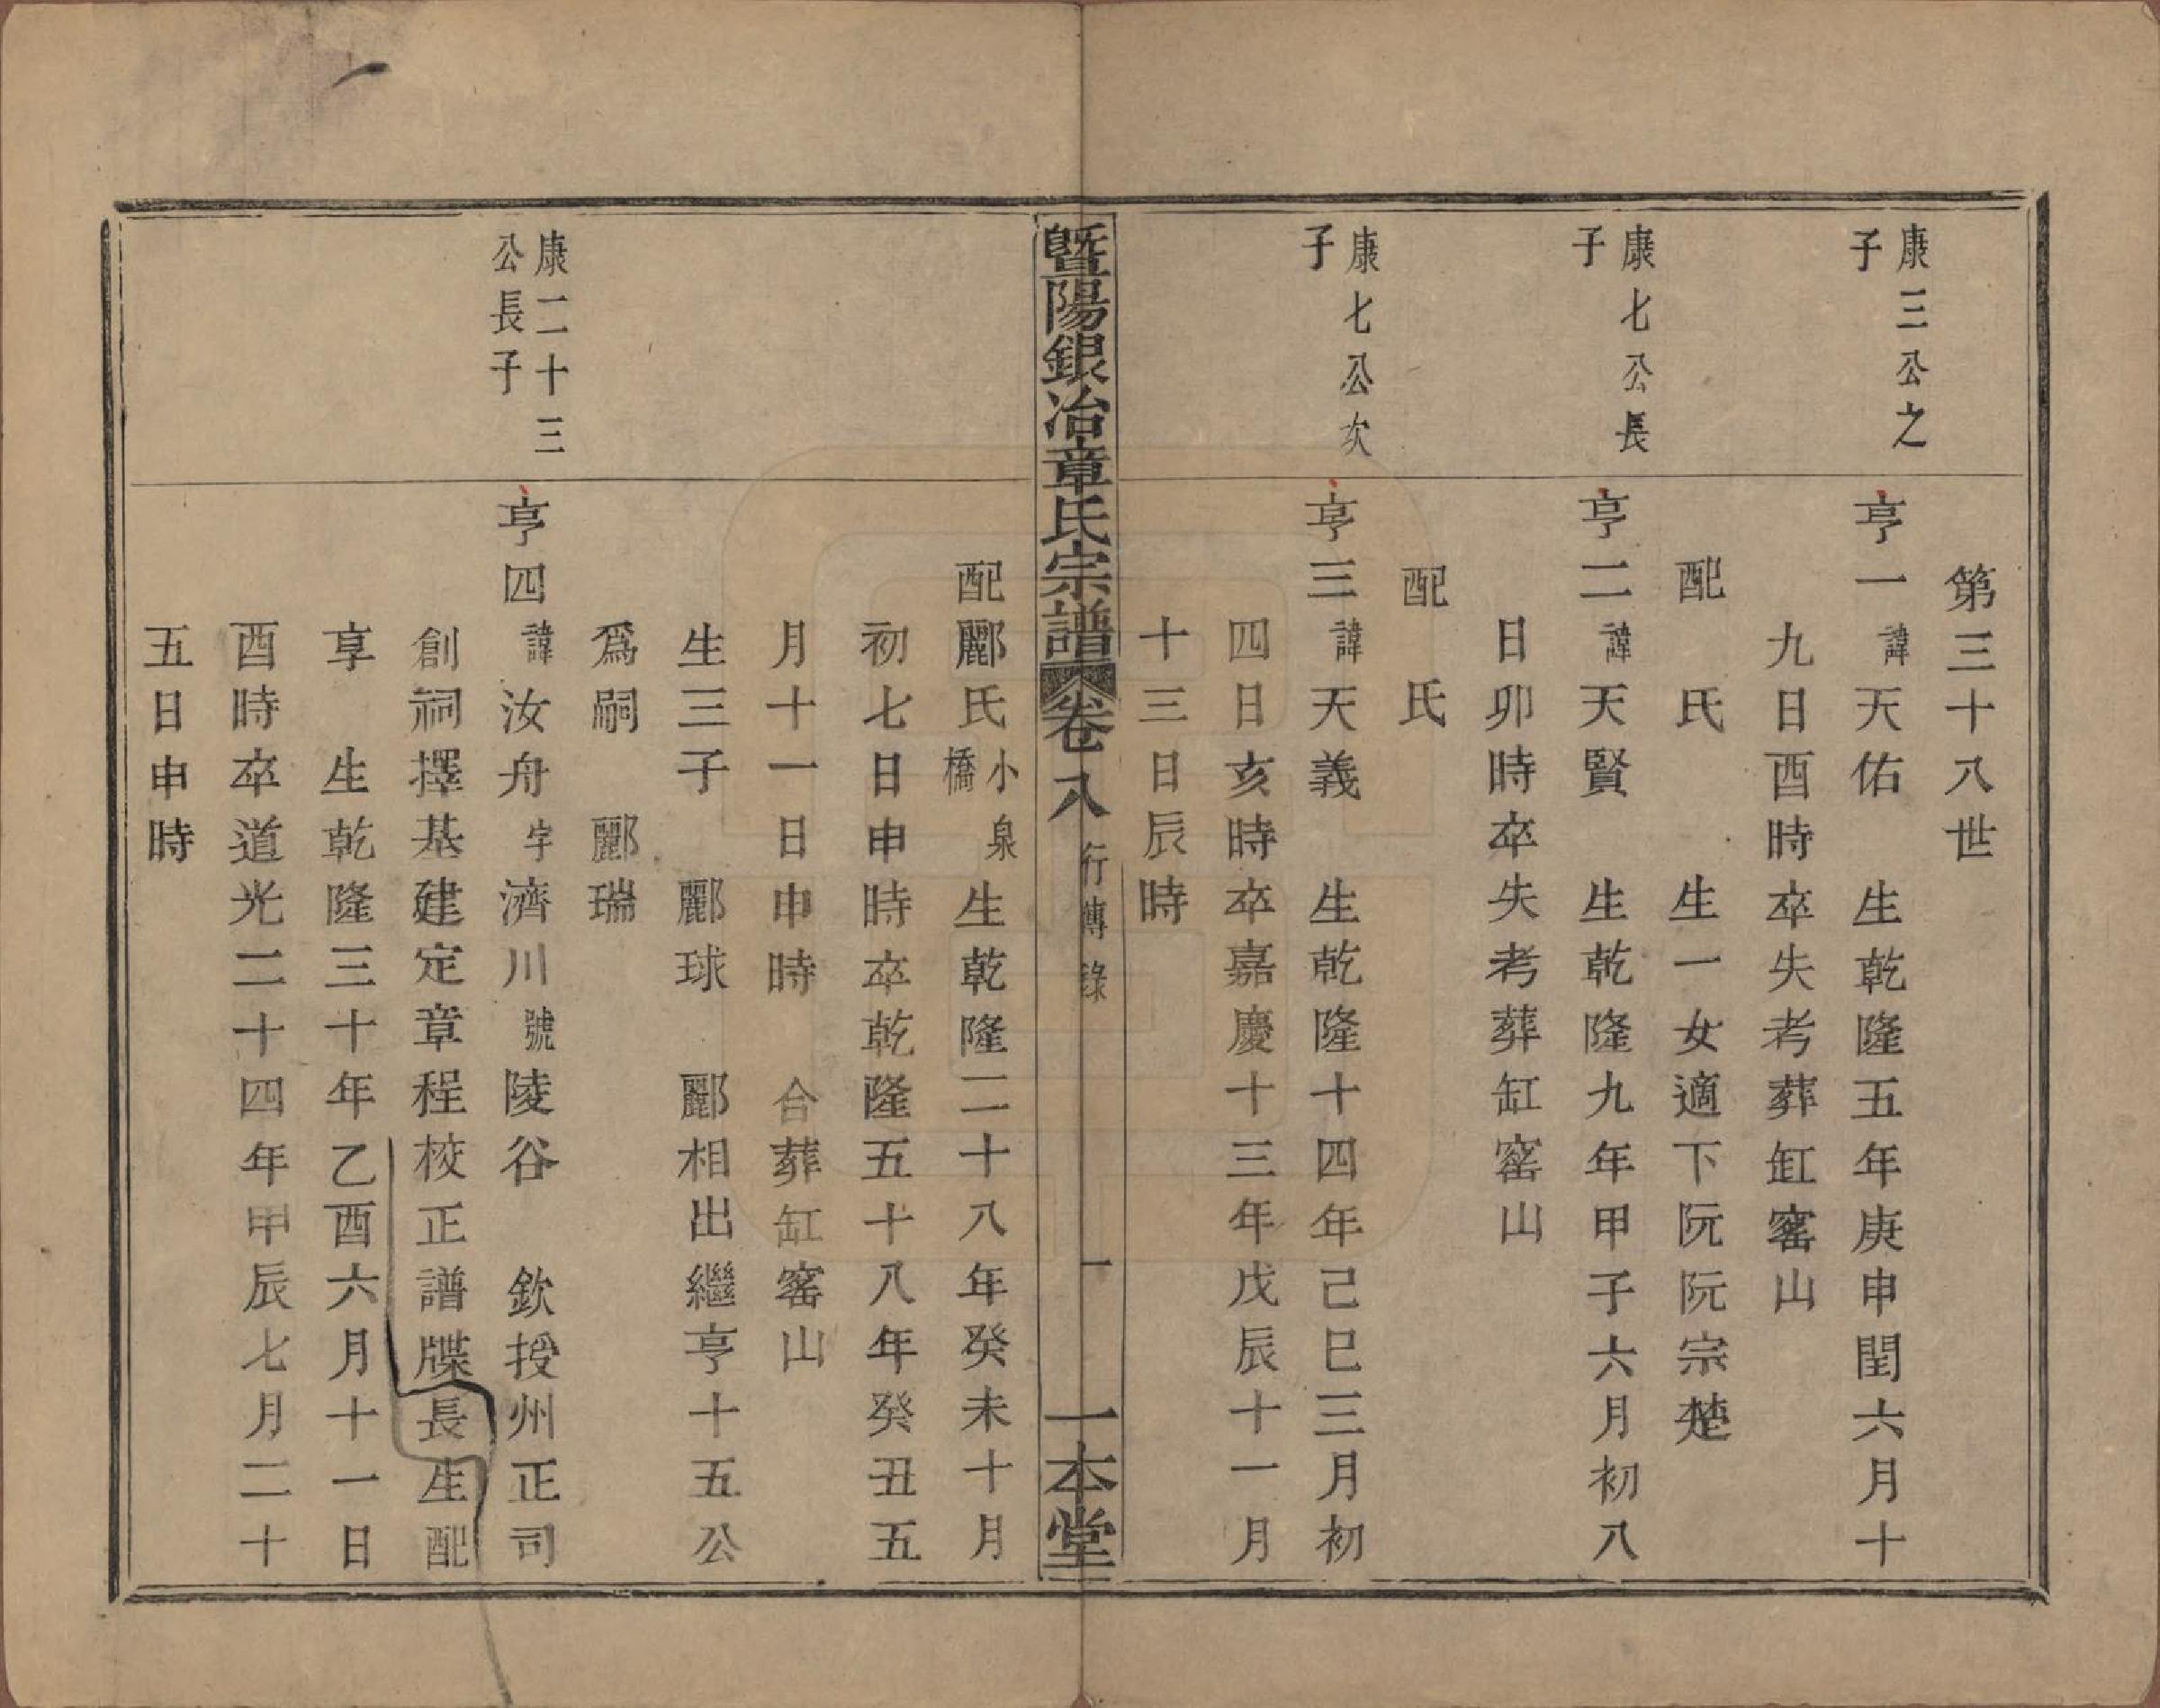 第三十八世
康三公之
子
亨一諱天佑　生乾隆五年庚申閏六月十
九日酉時卒失考葬缸窰山
配　氏　　生一女適下阮阮宗楚
康七公長
子
亨二諱天賢　生乾隆九年甲子六月初八
日卯時卒失考葬缸窰山
配　氏
康七公次
子
亨三諱天義　生乾隆十四年己巳三月初
四日亥時卒嘉慶十三年戊辰十一月
十三日辰時
暨陽銀冶章氏宗譜 卷八 行傳錄 一 一本堂
配酈氏小泉橋生乾隆二十八年癸未十月
初七日申時卒乾隆五十八年癸丑五
月十一日申時　合葬缸窰山
生三子　酈球　酈相出繼亨十五公
爲嗣　酈瑞
康二十三
公長子
亨四諱汝舟字濟川號陵谷　欽授州正司
創祠擇基建定章程校正譜牒長生配
享　生乾隆三十年乙酉六月十一日
酉時卒道光二十四年甲辰七月二十
五日申時